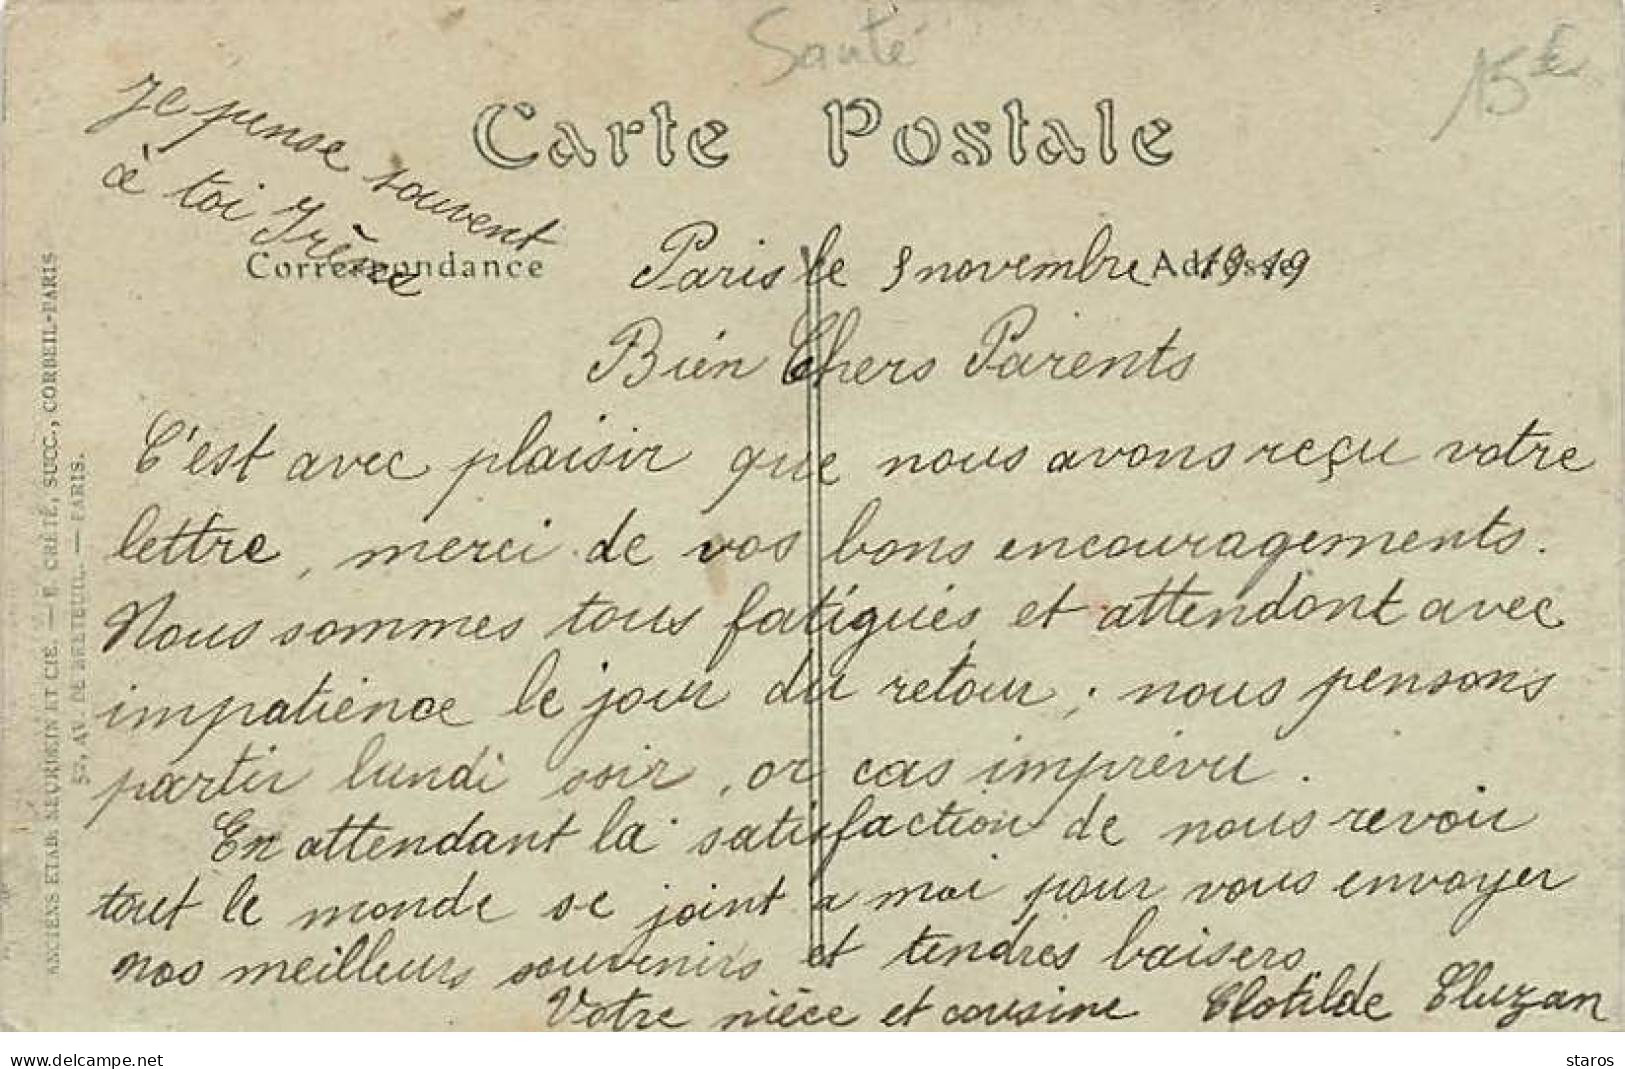 Santé
15€
Carte Postale
Je pense souvent
à toi Irène
Correspondance
Adresse
Paris le 9 novembre 1919
Bien Chers Parents
C'est avec plaisir que nous avons reçu votre
lettre, merci de vos bons encouragements.
Nous sommes tous fatigués et attendont avec
impatience le jour du retour ; nous pensons
partir lundi soir, or cas imprévu.
En attendant la satisfaction de nous revoir
tout le monde se joint a moi pour vous envoyer
nos meilleurs souvenirs et tendres baisers
Votre nièce et cousine Clotilde Cluzan
ANCIENS ETAB. NEURDEIN ET CIE. — E. CRÉTÉ, SUCC., CORBEIL-PARIS
52, AV. DE BRETEUIL. — PARIS.
www.delcampe.net
staros